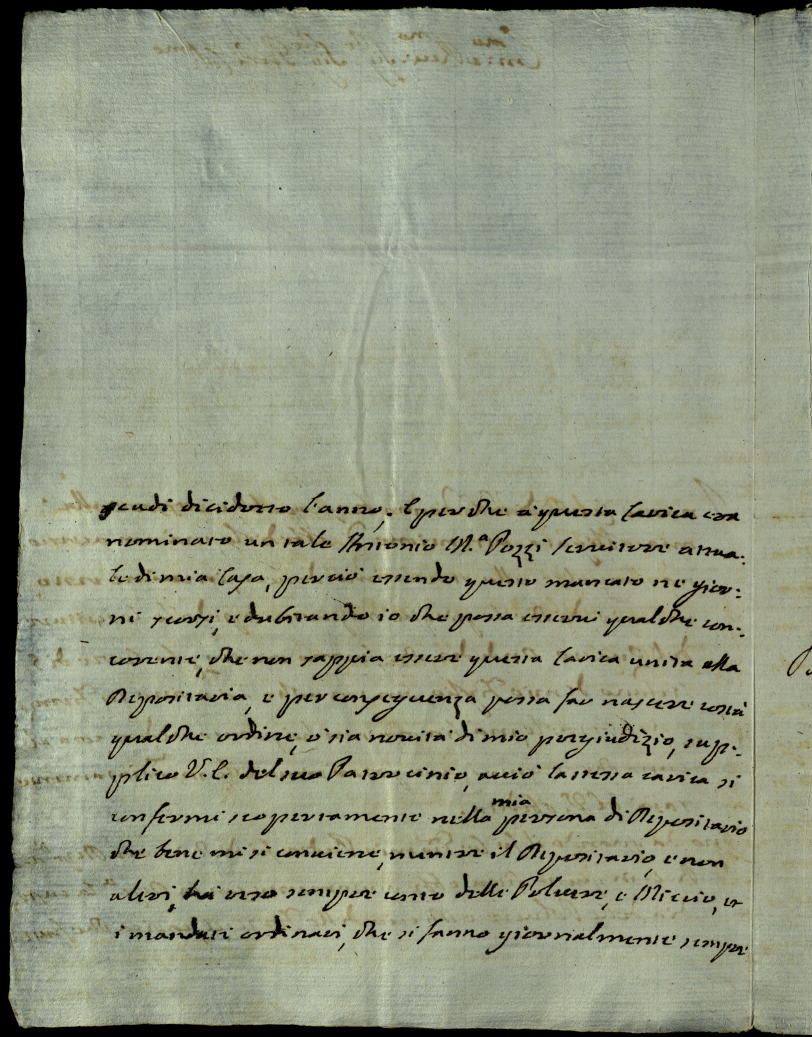 scudi dicidotto l'anno. E perche a questa Carica era
nominato un tale Antonio M.ª Pozzi servitore attua:
le di mia Casa, perciò essendo questo mancato ne gior:
ni scorsi, e dubitando io che possa esservi qualche con:
corrente, che non sappia essere questa Carica unita alla
Depositaria, e per conseguenza possa far nascere costà
qualche ordine, o sia novità di mio pregiudizio, sup:
plico V. E. del suo Patrocinio, acciò la stessa carica si
confermi scopertamente nella mia persona di Depositario
che bene mi si conviene, mentre il Depositario, e non
altri, ha reso sempre conto delle Polvere, e Miccio, et
i mandati ordinari, che si fanno giornalmente sempre